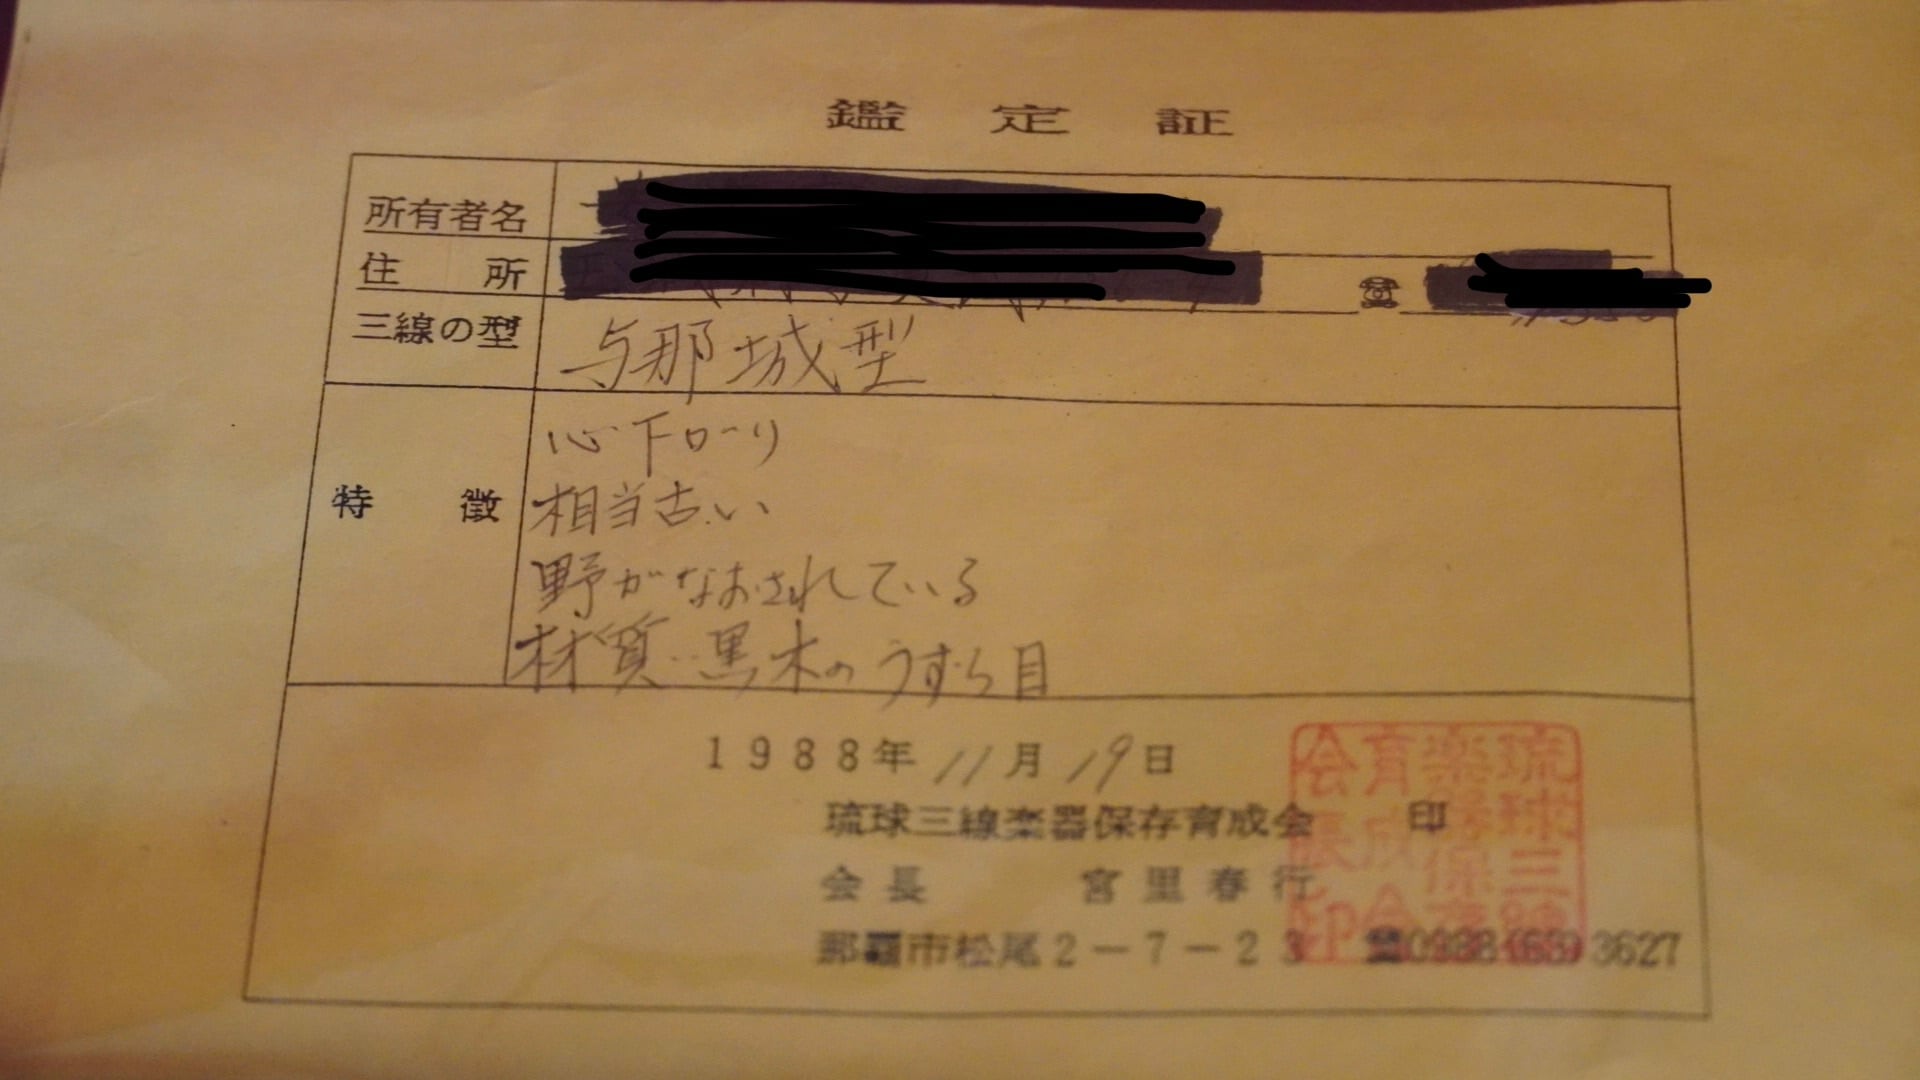 鑑定証
所有者名
住所 ☎
三線の型 与那城型
特徴
心下ローり
相当古い
野がなおされている
材質…黒木のうずら目
1988年11月19日
琉球三線楽器保存育成会 印
会長 宮里春行
那覇市松尾2-7-23 ☎0988(63)3627
琉球三線
楽器保存
育成会
会長印